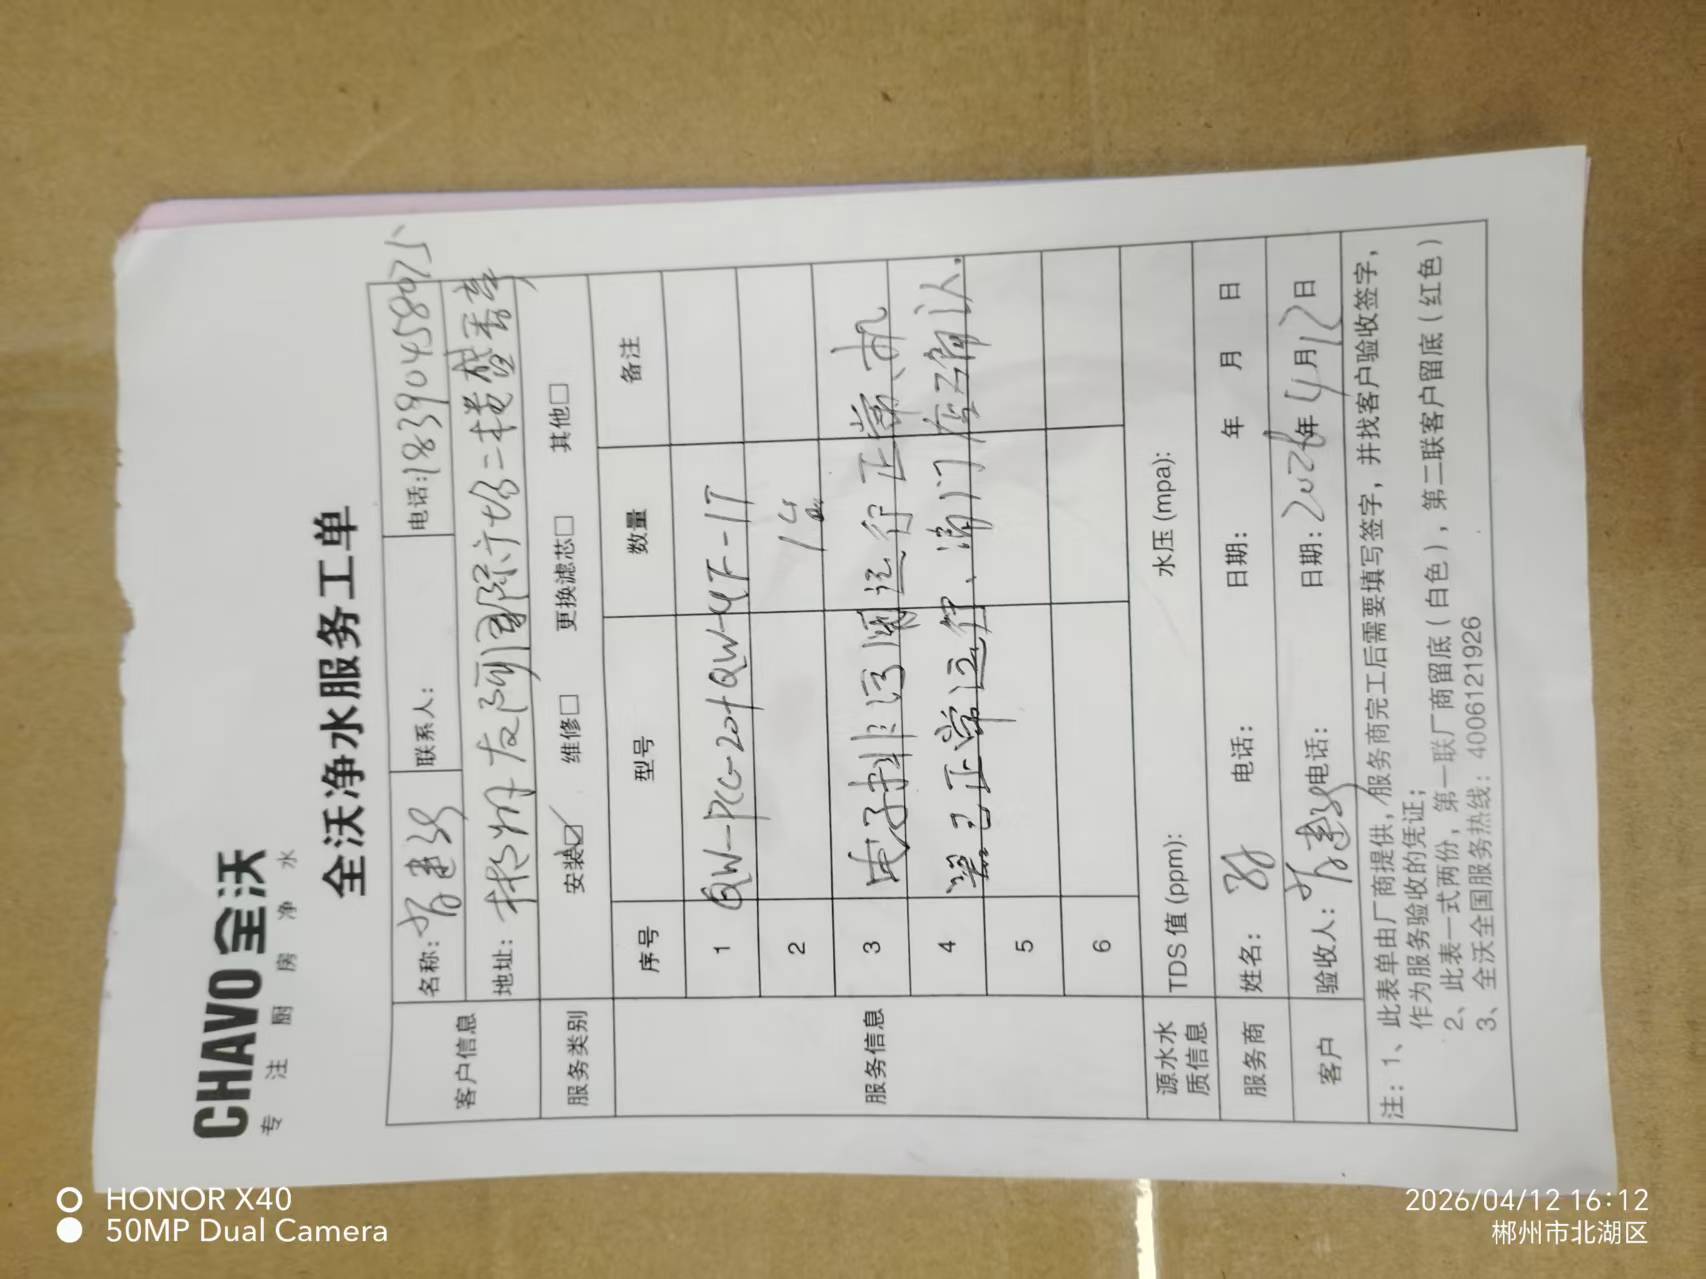 CHAVO 全沃
专注厨房净水
全沃净水服务工单
客户信息
名称: 联系人: 电话:18390458975
地址: 郴州友阿国际广场二楼
服务类别
安装☑ 维修□ 更换滤芯□ 其他□
服务信息
序号 型号 数量 备注
1 QW-PCG-20+QW-4F-1T
2 1台
3 电子排污阀运行正常、机
4 器已正常运行、阀门 店已确认.
5
6
源水水质信息
TDS 值 (ppm): 水压 (mpa):
服务商
姓名: 电话: 日期: 年 月 日
客户
验收人: 电话: 日期: 2026年4月12日
注: 1、此表单由厂商提供, 服务商完工后需要填写签字, 并找客户验收签字,
作为服务验收的凭证;
2、此表一式两份, 第一联厂商留底 (白色), 第二联客户留底 (红色)
3、全沃全国服务热线: 4006121926
HONOR X40
50MP Dual Camera
2026/04/12 16:12
郴州市北湖区